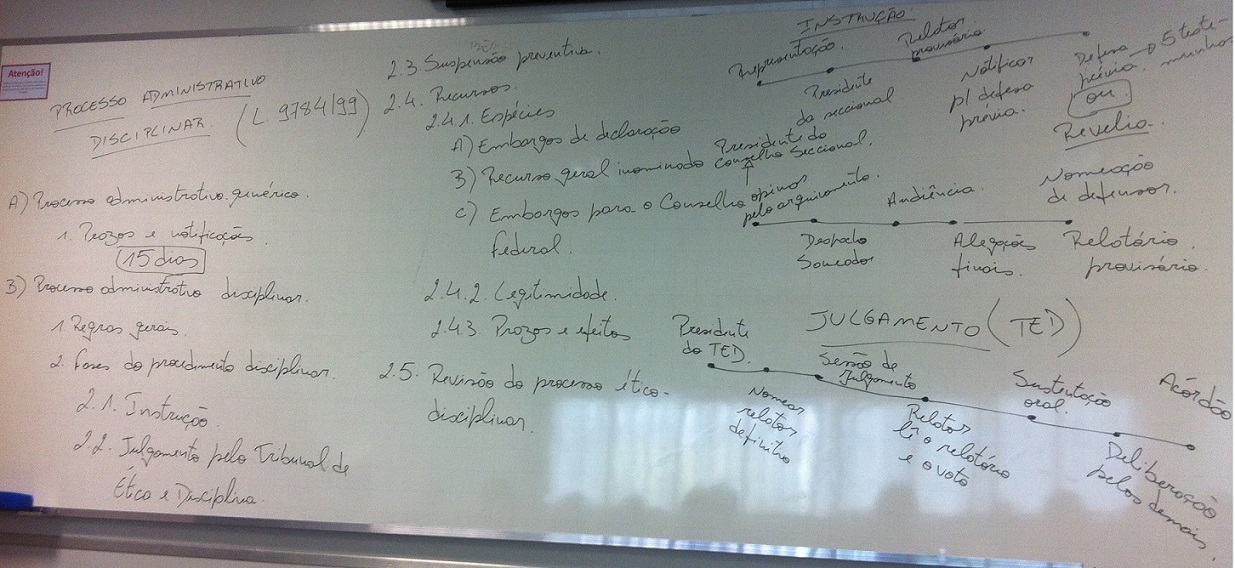 Atenção!
PROCESSO ADMINISTRATIVO
DISCIPLINAR. (L. 9784/99)
A) Processo administrativo genérico.
1. Prazos e notificações.
15 dias
B) Processo administrativo disciplinar.
1. Regras gerais.
2. Fases do procedimento disciplinar.
2.1. Instrução.
2.2. Julgamento pelo Tribunal de
Ética e Disciplina.
2.3. Suspensão preventiva.
2.4. Recursos.
2.4.1. Espécies
A) Embargos de declaração
B) Recurso geral inominado
C) Embargos para o Conselho
Federal.
2.4.2. Legitimidade.
2.4.3 Prazos e efeitos
2.5. Revisão do processo ético-
disciplinar.
INSTRUÇÃO.
Representação.
Presidente
da seccional
Relator
provisório.
Notificar
p/ defesa
prévia.
Defesa
prévia. → 5 teste-
munhas
ou.
Revelia.
Nomeação
de defensor.
Presidente do
Conselho Seccional.
opinar
pelo arquivamento.
Despacho
Saneador
Audiência.
Alegações
finais.
Relatório.
provisório.
JULGAMENTO (TED)
Presidente
do TED.
Nomear
relator
definitivo
Sessão de
Julgamento
Relator
lê o relatório
e o voto
Sustentação
oral.
Deliberação
pelos demais.
Acórdão